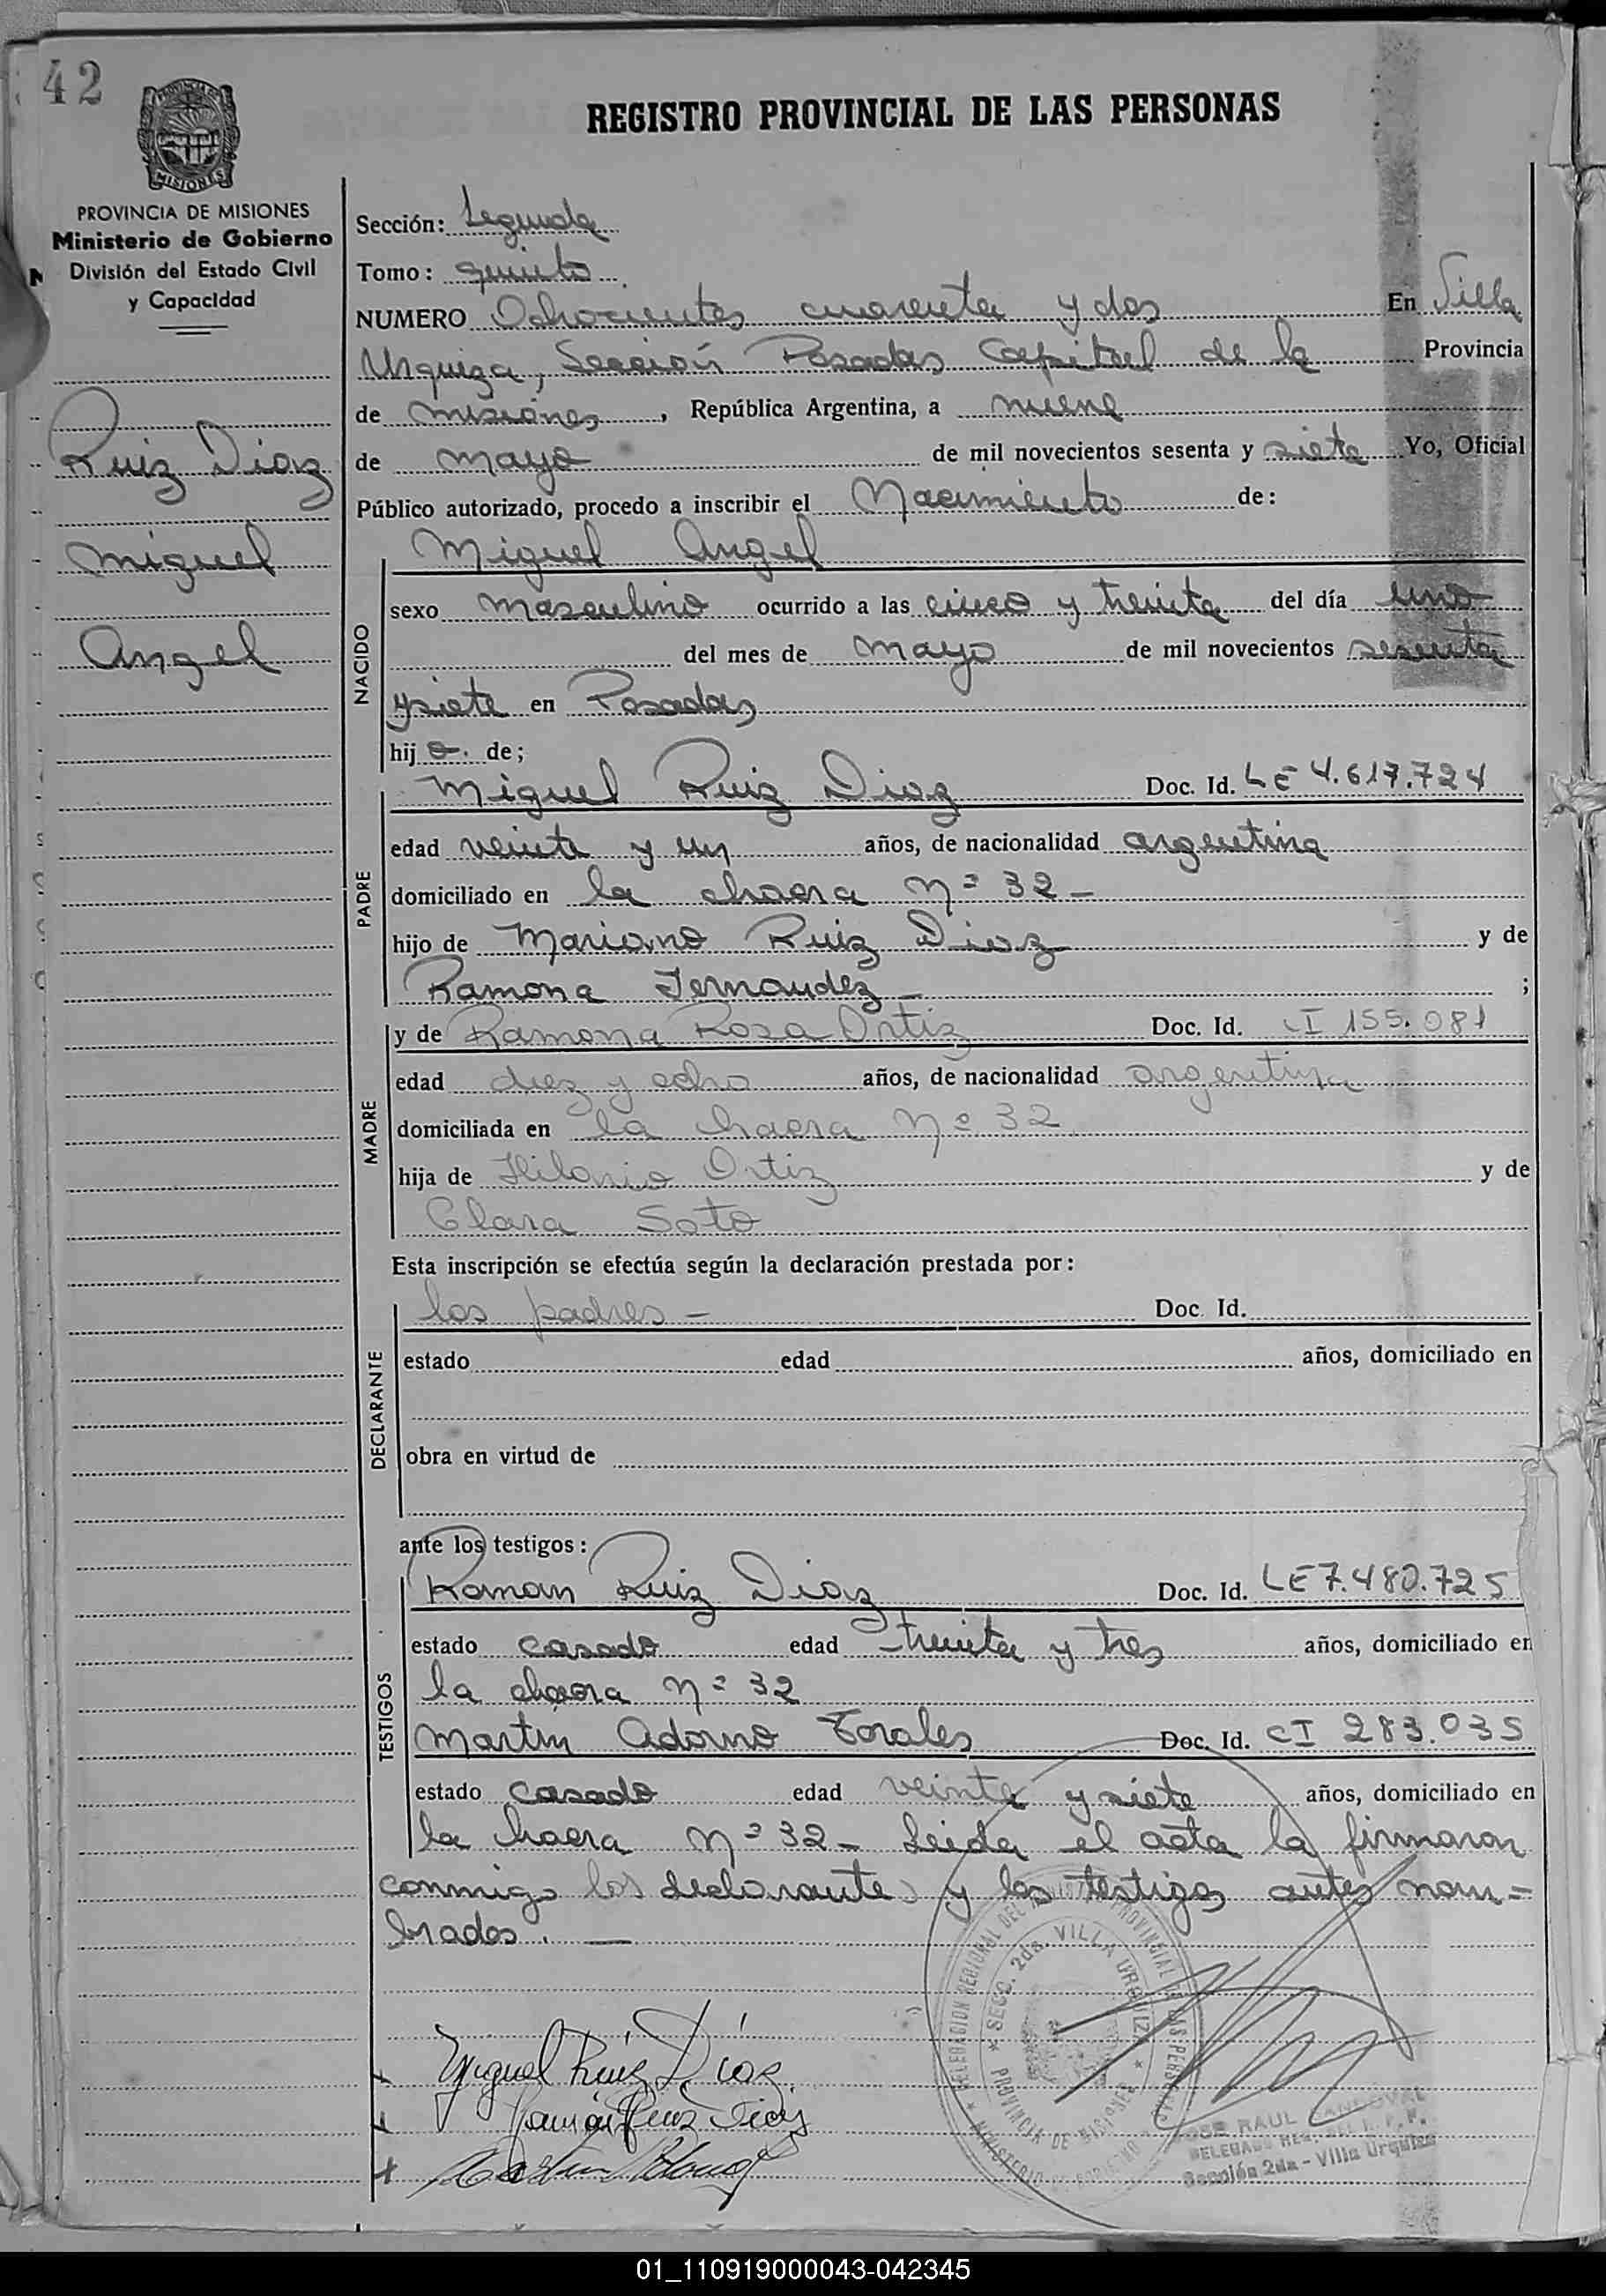 42
REGISTRO PROVINCIAL DE LAS PERSONAS
MISIONES
PROVINCIA DE MISIONES
Ministerio de Gobierno
División del Estado Civil
y Capacidad
Ruiz Diaz
Miguel
Angel
Sección: Segunda
Tomo: quinto
NUMERO Ochocientos cuarenta y dos En Villa
Urquiza, Sección Posadas Capital de la Provincia
de Misiones, República Argentina, a nueve
de mayo de mil novecientos sesenta y siete Yo, Oficial
Público autorizado, procedo a inscribir el Nacimiento de:
Miguel Angel
NACIDO
sexo masculino ocurrido a las cinco y treinta del día uno
del mes de mayo de mil novecientos sesenta
y siete en Posadas
hij o. de;
PADRE
Miguel Ruiz Diaz Doc. Id. LE 4.617.724
edad veinte y un años, de nacionalidad argentina
domiciliado en la chacra Nº 32 -
hijo de Mariano Ruiz Diaz y de
Ramona Fernandez - ;
MADRE
y de Ramona Rosa Ortiz Doc. Id. CI 155.081
edad diez y ocho años, de nacionalidad argentina
domiciliada en la chacra Nº 32
hija de Hilario Ortiz y de
Clara Soto
Esta inscripción se efectúa según la declaración prestada por:
DECLARANTE
los padres - Doc. Id.
estado edad años, domiciliado en
obra en virtud de
ante los testigos:
TESTIGOS
Ramon Ruiz Diaz Doc. Id. LE 7.480.725
estado casado edad treinta y tres años, domiciliado en
la chacra Nº 32
Martin Adorno Torales Doc. Id. CI 283.035
estado casado edad veinte y siete años, domiciliado en
la chacra Nº 32 - Leida el acta la firmaron
conmigo los declarantes y los testigos antes nom=
brados. —
DELEGACION REGIONAL DEL PROVINCIAL DE LAS PERSONAS
* SECC. 2da. VILLA URQUIZA *
PROVINCIA DE MISIONES
* MINISTERIO DE GOBIERNO
Miguel Ruiz Díaz.
Ramón Ruiz Diaz
JOSE RAUL SANDOVAL
DELEGADO REG. DEL R. P. P.
Sección 2da - Villa Urquiza
01_110919000043-042345